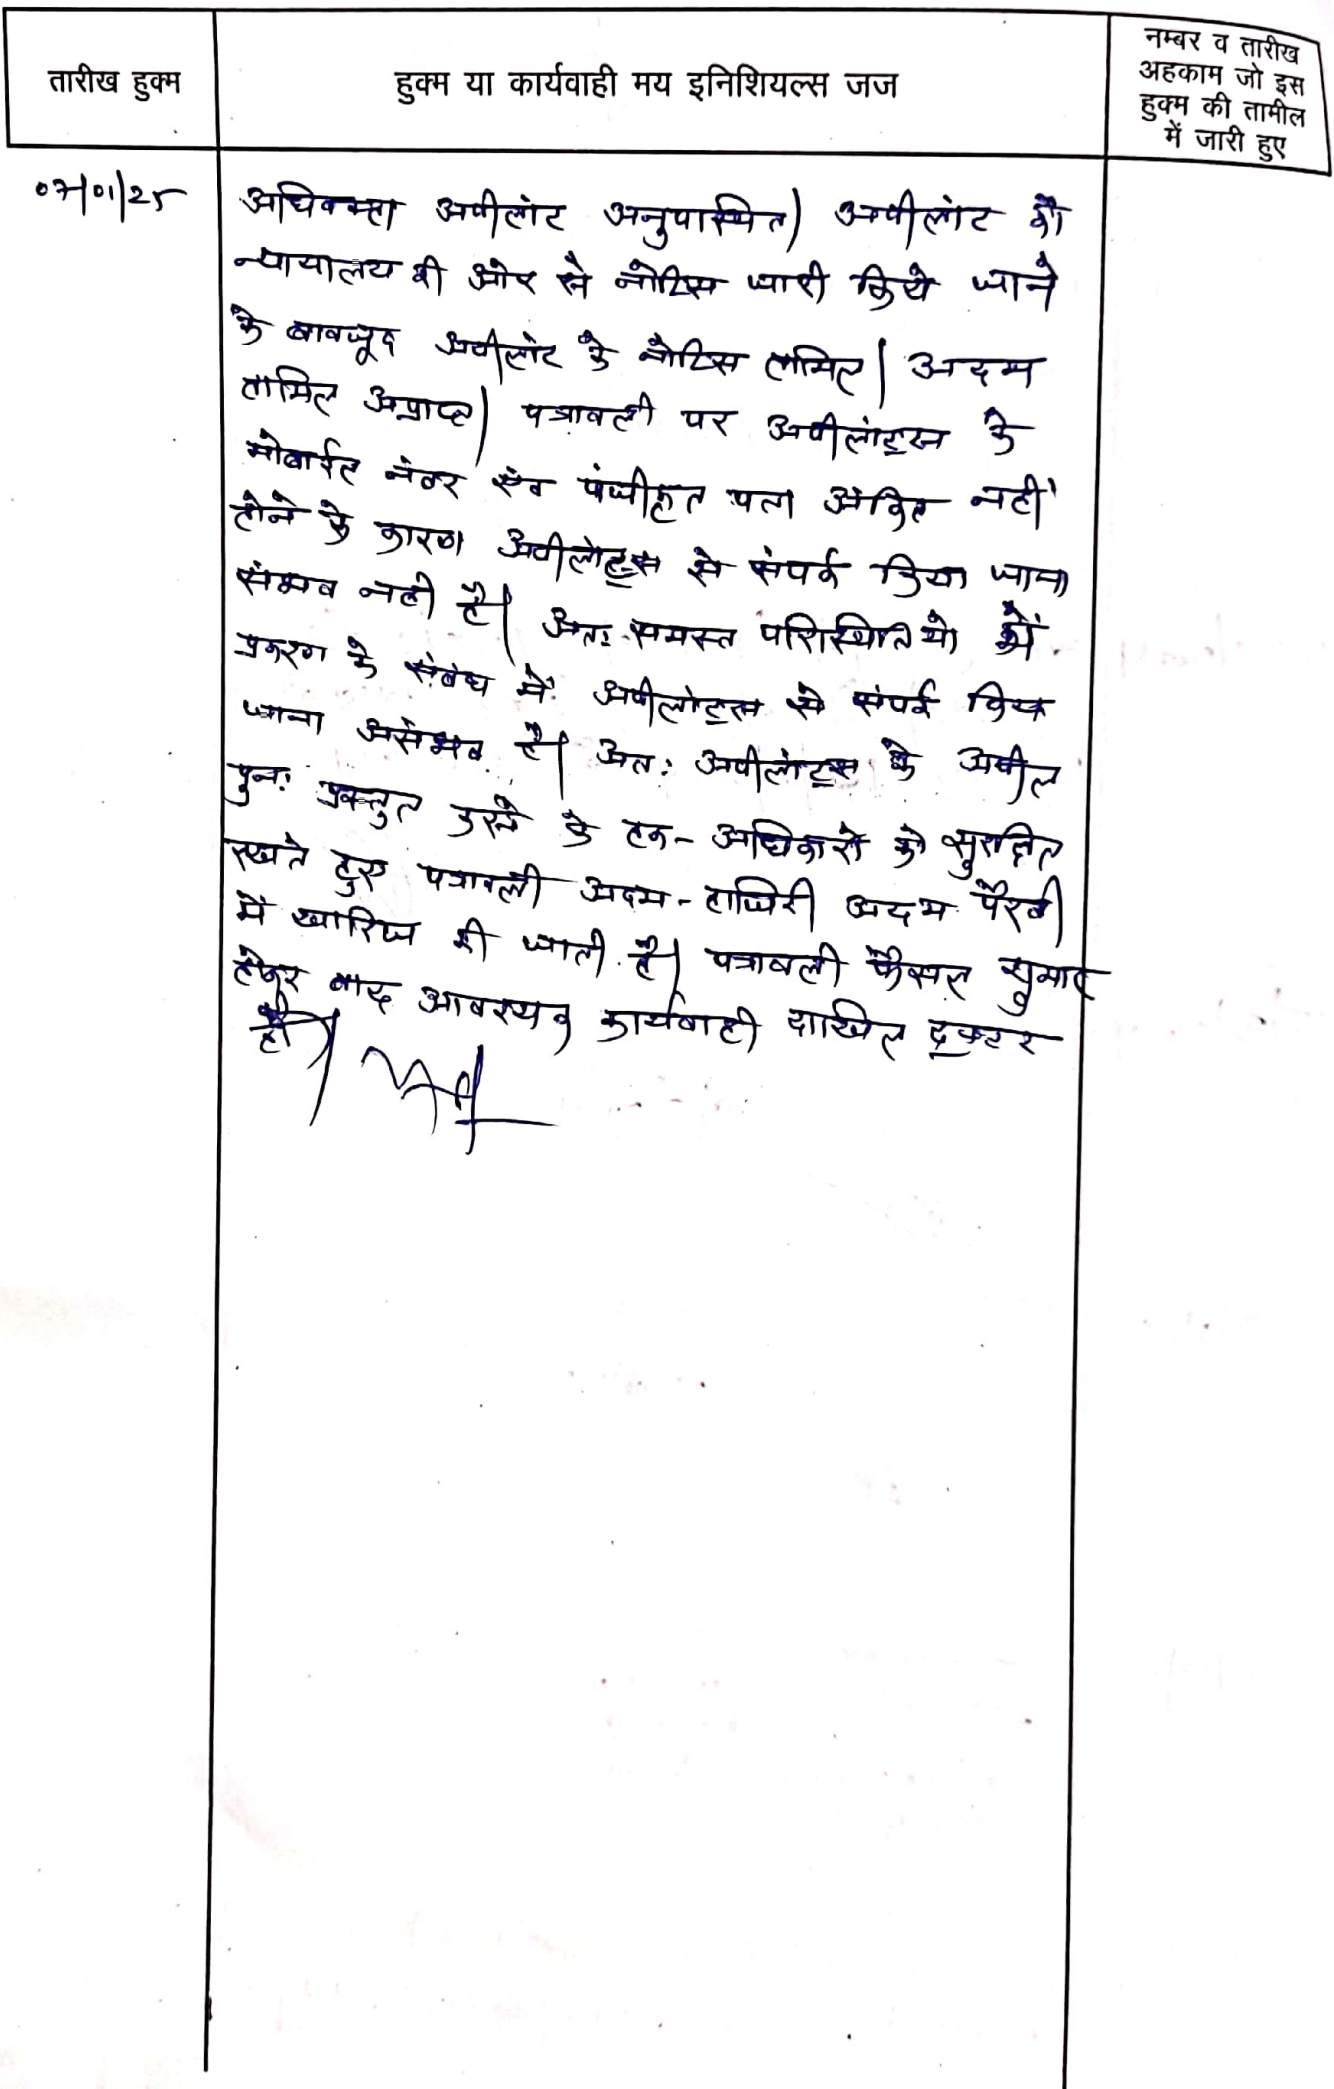 तारीख हुक्म
हुक्म या कार्यवाही मय इनिशियल्स जज
नम्बर व तारीख
अहकाम जो इस
हुक्म की तामील
में जारी हुए
07/01/25
अधिवक्ता अपीलांट अनुपस्थित। अपीलांट को
न्यायालय की ओर से नोटिस जारी किये जाने
के बावजूद अपीलांट के नोटिस तामिल/अदम
तामिल अप्राप्त। पत्रावली पर अपीलांट्स के
मोबाईल नंबर एंव पंजीकृत पता अंकित नहीं
होने के कारण अपीलांट्स से संपर्क किया जाना
संभव नहीं है। अतः समस्त परिस्थितियो में
प्रकरण के संबंध में अपीलांट्स से संपर्क किया
जाना असंभव है। अतः अपीलांट्स के अपील
पुनः प्रस्तुत करने के हक-अधिकारो को सुरक्षित
रखते हुए पत्रावली अदम-हाजिरी अदम पैरवी
में खारिज की जाती है। पत्रावली फैसल शुमार
होकर बाद आवश्यक कार्यवाही दाखिल दफ्तर
हो।